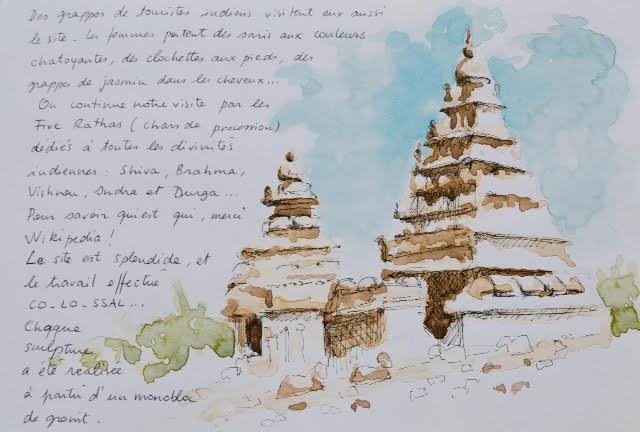 Des grappes de touristes indiens visitent eux aussi
le site. Les femmes portent des saris aux couleurs
chatoyantes, des clochettes aux pieds, des
grappes de jasmin dans les cheveux...
On continue notre visite par les
Five Rathas (chars de procession)
dédiés à toutes les divinités
indiennes : Shiva, Brahma,
Vishnou, Indra et Durga...
Pour savoir qui est qui, merci
Wikipedia !
Le site est splendide, et
le travail effectué
CO_LO_SSAL...
Chaque
sculpture
a été réalisée
à partir d'un monobloc
de granit.